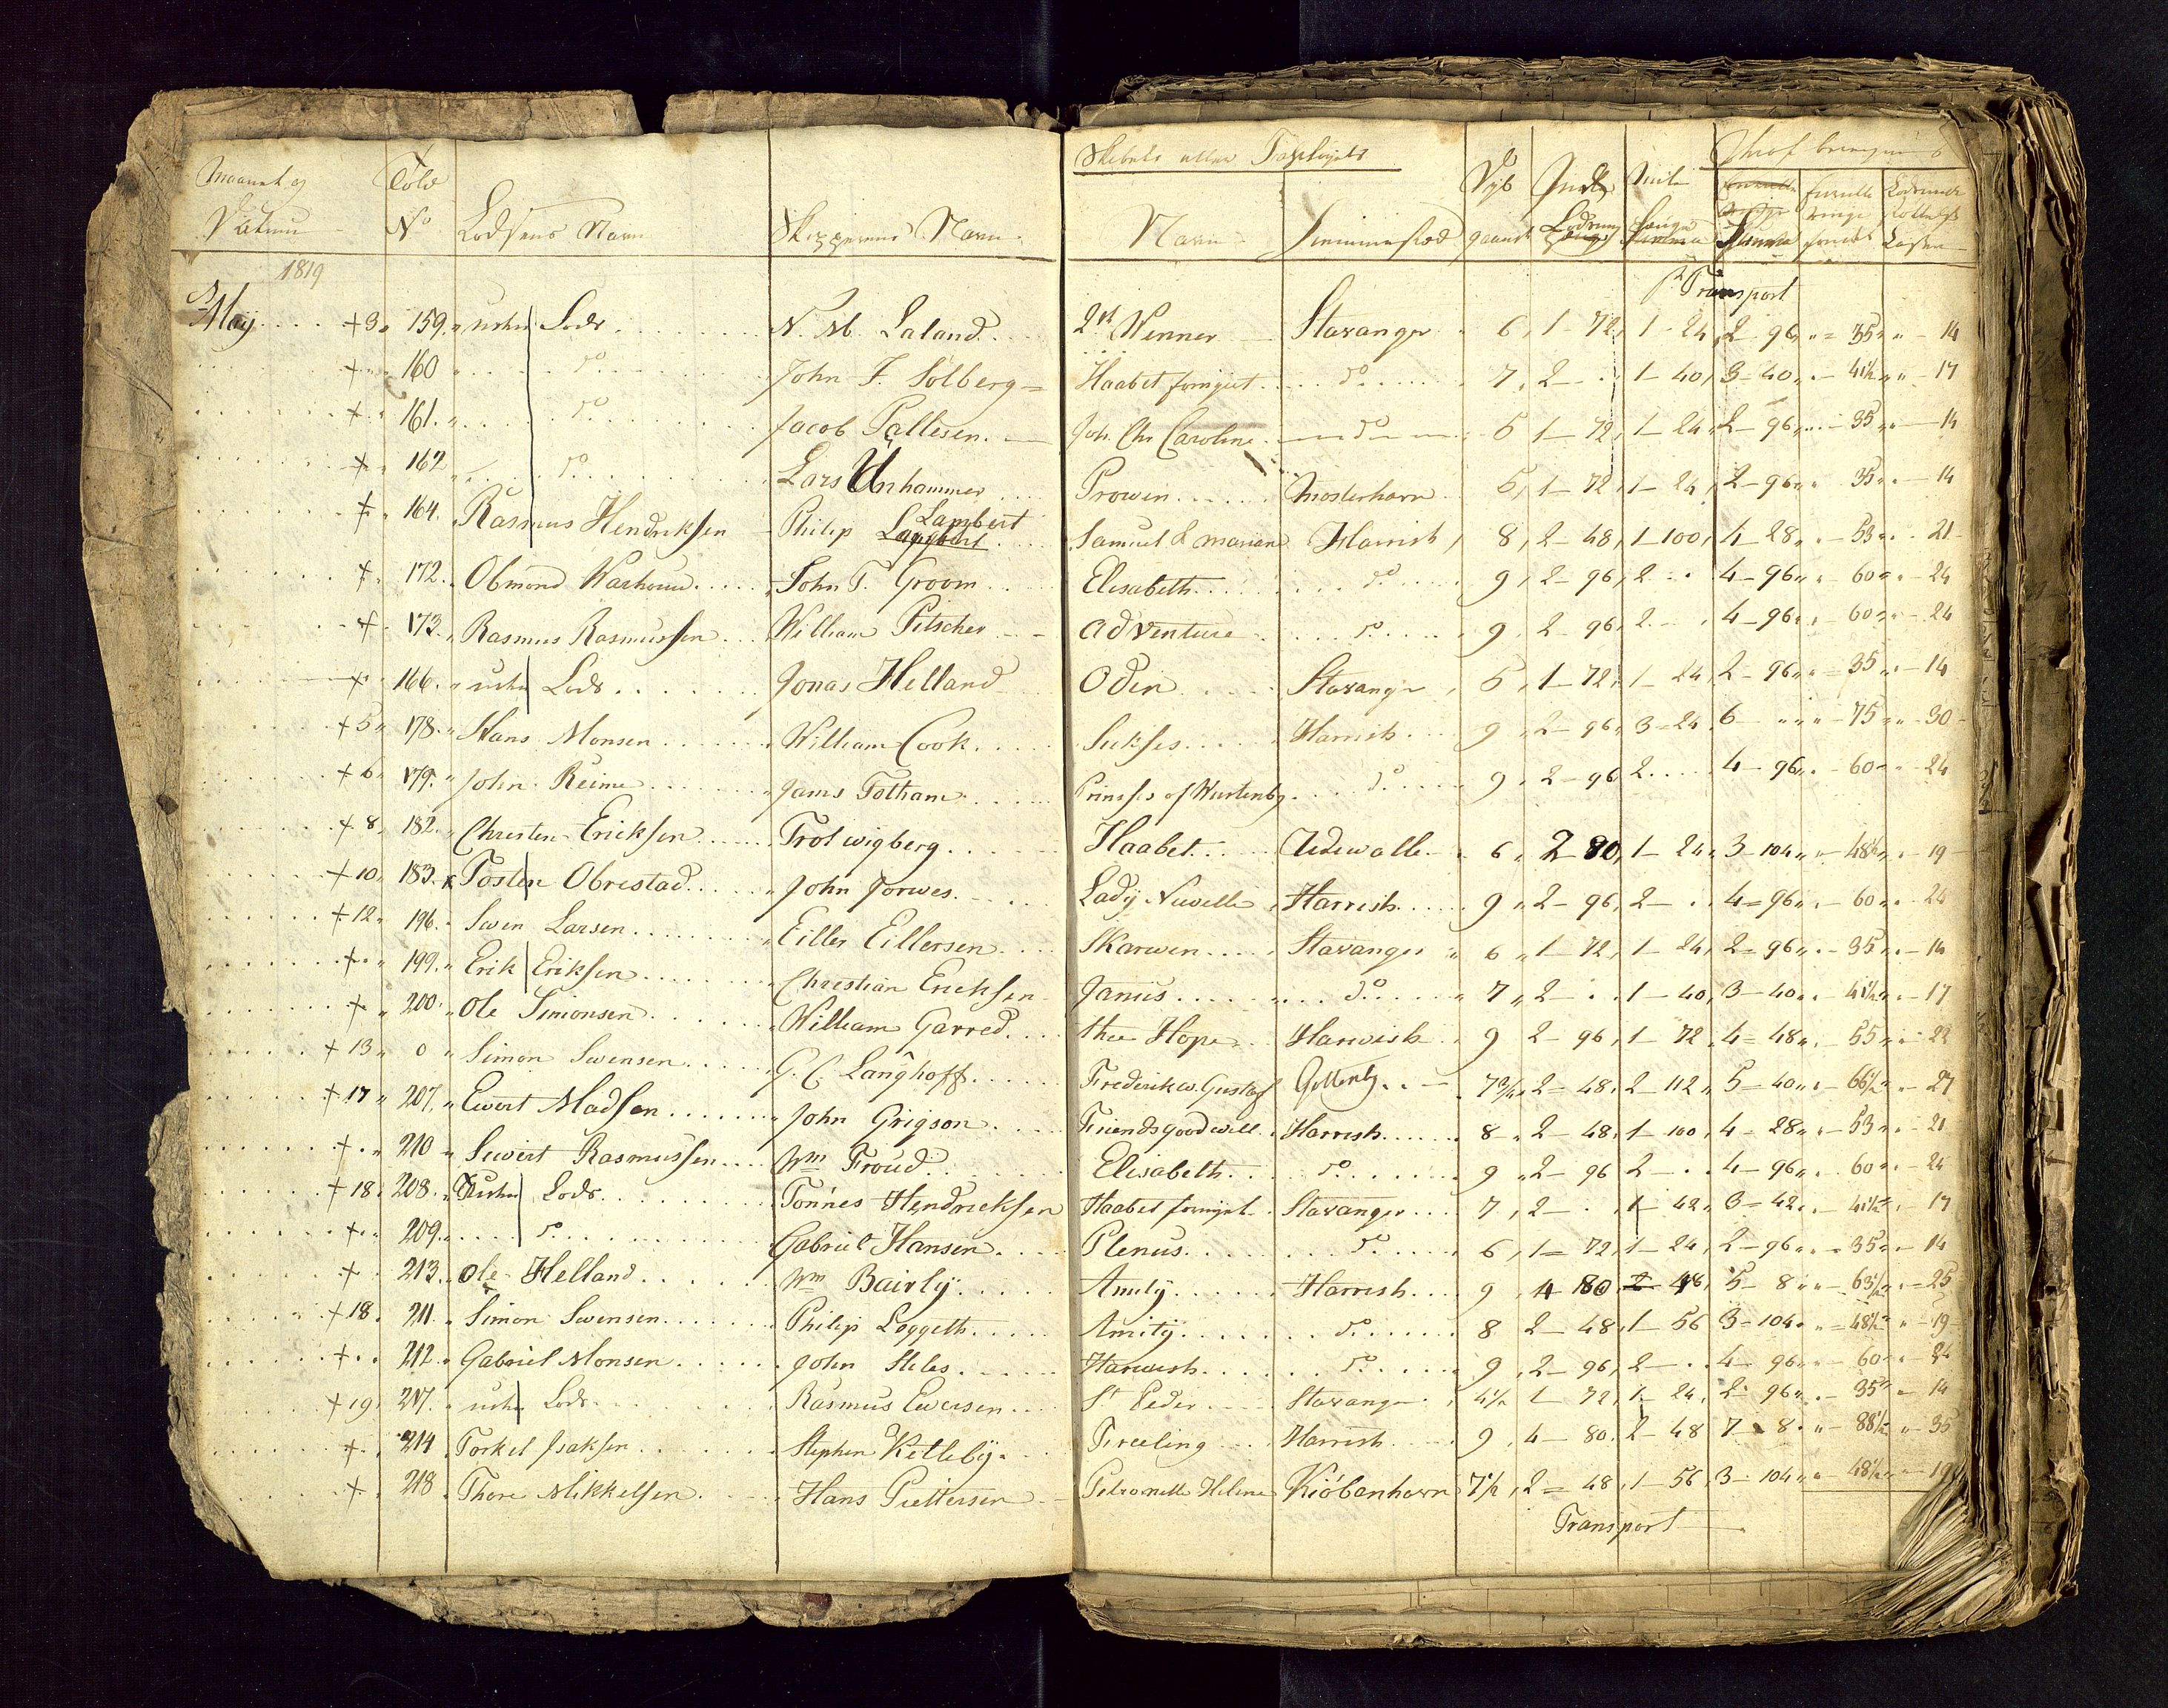 Maanet og Datum Told No Lodsens Navn Skipperens Navn Skibets eller Fartøyets Navn Hiemmested Dyb gaaende
1819
Transport
May 3 159 uden Lods N. M. Laland 2de Wenner Stavanger 6 1-72 1-24 2-96 35 14
160 do John F. Sólberg Haabet fornyiet do 7 2 1-40 3-40 41½ 17
161 do Jacob Pallesen Joh. Chr Caroline do 5 1-72 1-24 2-96 35 14
162 do Lars Unhammer Prowen Mosterhavn 5 1-72 1-24 2-96 35 14
164 Rasmus Hendriksen Philip Lambert Samuel & Mariane Harrish 8 2-48 1-100 4-28 53 21
172 Obmond Warhoud John T. Groom Elisabeth do 9 2-96 2 4-96 60 24
173 Rasmus Rasmussen William Pitscher Adventure do 9 2-96 2 4-96 60 24
166 uden Lods Jonas Helland Odin Stavanger 5 1-72 1-24 2-96 35 14
5 178 Hans Monsen William Cook Sukses Harrish 9 2-96 3-24 6 75 30
6 179 John Reime Jams Totham Prinses of Wurtenbg do 9 2-96 2 4-96 60 24
8 182 Christen Ericksen Trotwigberg Haabet Udewalle 6 2 80 1-24 3-104 48½ 19
10 183 Tosten Obrestad John Jorwes Lady Nuvelle Harrish 9 2-96 2 4-96 60 24
12 196 Swen Larsen Eiller Eillersen Skarwen Stavanger 6 1-72 1-24 2-96 35 14
199 Erik Eriksen Christian Ericksen Janus do 7 2 1-40 3-40 41½ 17
200 Ole Simonsen William Garred thee Hope Harwish 9 2-96 1-72 4-48 55 22
13 0 Simon Swensen G. C. Langhoff Frederik w. Gustaf Gottenbg 7¾ 2-48 2-112 5-40 66½ 27
17 207 Ewert Madsen John Grigson Friends good will Harrish 8 2-48 1-100 4-28 53 21
210 Siwert Rasmussen Wm Froud Elisabeth do 9 2-96 2 4-96 60 24
18 208 uden Lods Tonnes Hendricksen Haabet fornyet Stavanger 7 2 1-42 3-42 41½ 17
209 do Gabriel Hansen Plenus do 6 1-72 1-24 2-96 35 14
213 Ole Helland Wm Bairly Amity Harrish 9 4 80 48 5-8 63½ 25
18 211 Simon Swensen Philip Loggeth Amity do 8 2-48 1-56 3-104 48½ 19
212 Gabriel Monsen John Stiles Harwish do 9 2-96 2 4-96 60 24
19 217 uden Lods Rasmus Ewersen St Peder Stavanger 4½ 1-72 1-24 2-96 35 14
214 Torkel Isaksen Stephen Ketleby Freeling Harrish 9 4-80 2-48 7-8 88½ 35
218 Thore Mikkelsen Hans Piettersen Petronelle Helene Kióbenhavn 7½ 2-48 1-56 3-104 48½ 19
Transport